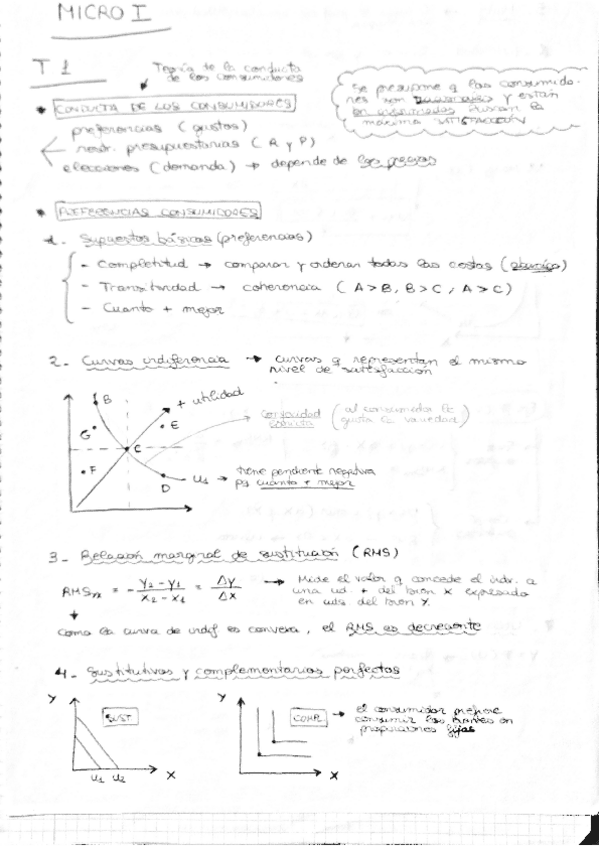 MICRO I
T1
Teoría de la conducta
de los consumidores
Se presupone q los consumido-
res son y están
buscan la
máxima SATISFACCIÓN
* CONDUCTA DE LOS CONSUMIDORES
preferencias (gustos)
restr. presupuestarias (R y P)
elecciones (demanda) → depende de los precios
* PREFERENCIAS CONSUMIDORES
1- Supuestos básicos (preferencias)
- Completitud → comparar y ordenar todas las cestas
- Transitividad → coherencia (A>B, B>C, A>C)
- Cuanto + mejor
2- Curvas indiferencia → curvas q representan el mismo
nivel de satisfacción
B
+ utilidad
G
E
C
F
D
U1
convexidad
(al consumidor le
gusta la variedad)
→ tiene pendiente negativa
pq cuanto + mejor
3- Relación marginal de sustitución (RMS)
RMS = - Y2 - Y1 / X2 - X1 = ΔY / ΔX → Mide el valor q concede el indv. a
una ud + del bien X expresado
en uds del bien Y.
Como la curva de indif es convexa, el RMS es decreciente
4- Sustitutivos y complementarios perfectos
Y
SUST
U1 U2 X
Y
COMPL
X
→ el consumidor prefiere
consumir los bienes en
proporciones fijas